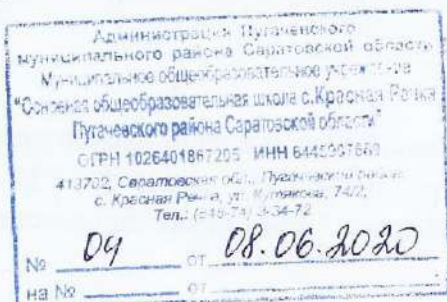 Администрация Пугачевского
муниципального района Саратовской области
Муниципальное общеобразовательное учреждение
"Основная общеобразовательная школа с. Красная Речка
Пугачевского района Саратовской области"
ОГРН 1026401867205 ИНН
413702, Саратовская обл., Пугачевский район
с. Красная Речка, ул. 74/2,
Тел.: 3-34-72
№ 04 от 08.06.2020
на № от